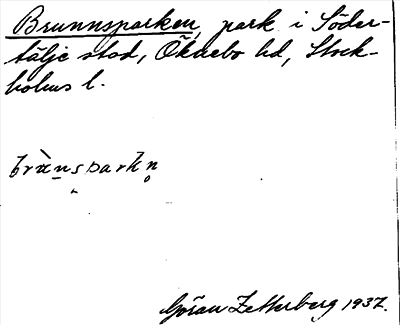 Brunnsparken, park i Söder-
tälje stad, Öknebo hd, Stock-
holms l.
Göran Zetterberg 1937.